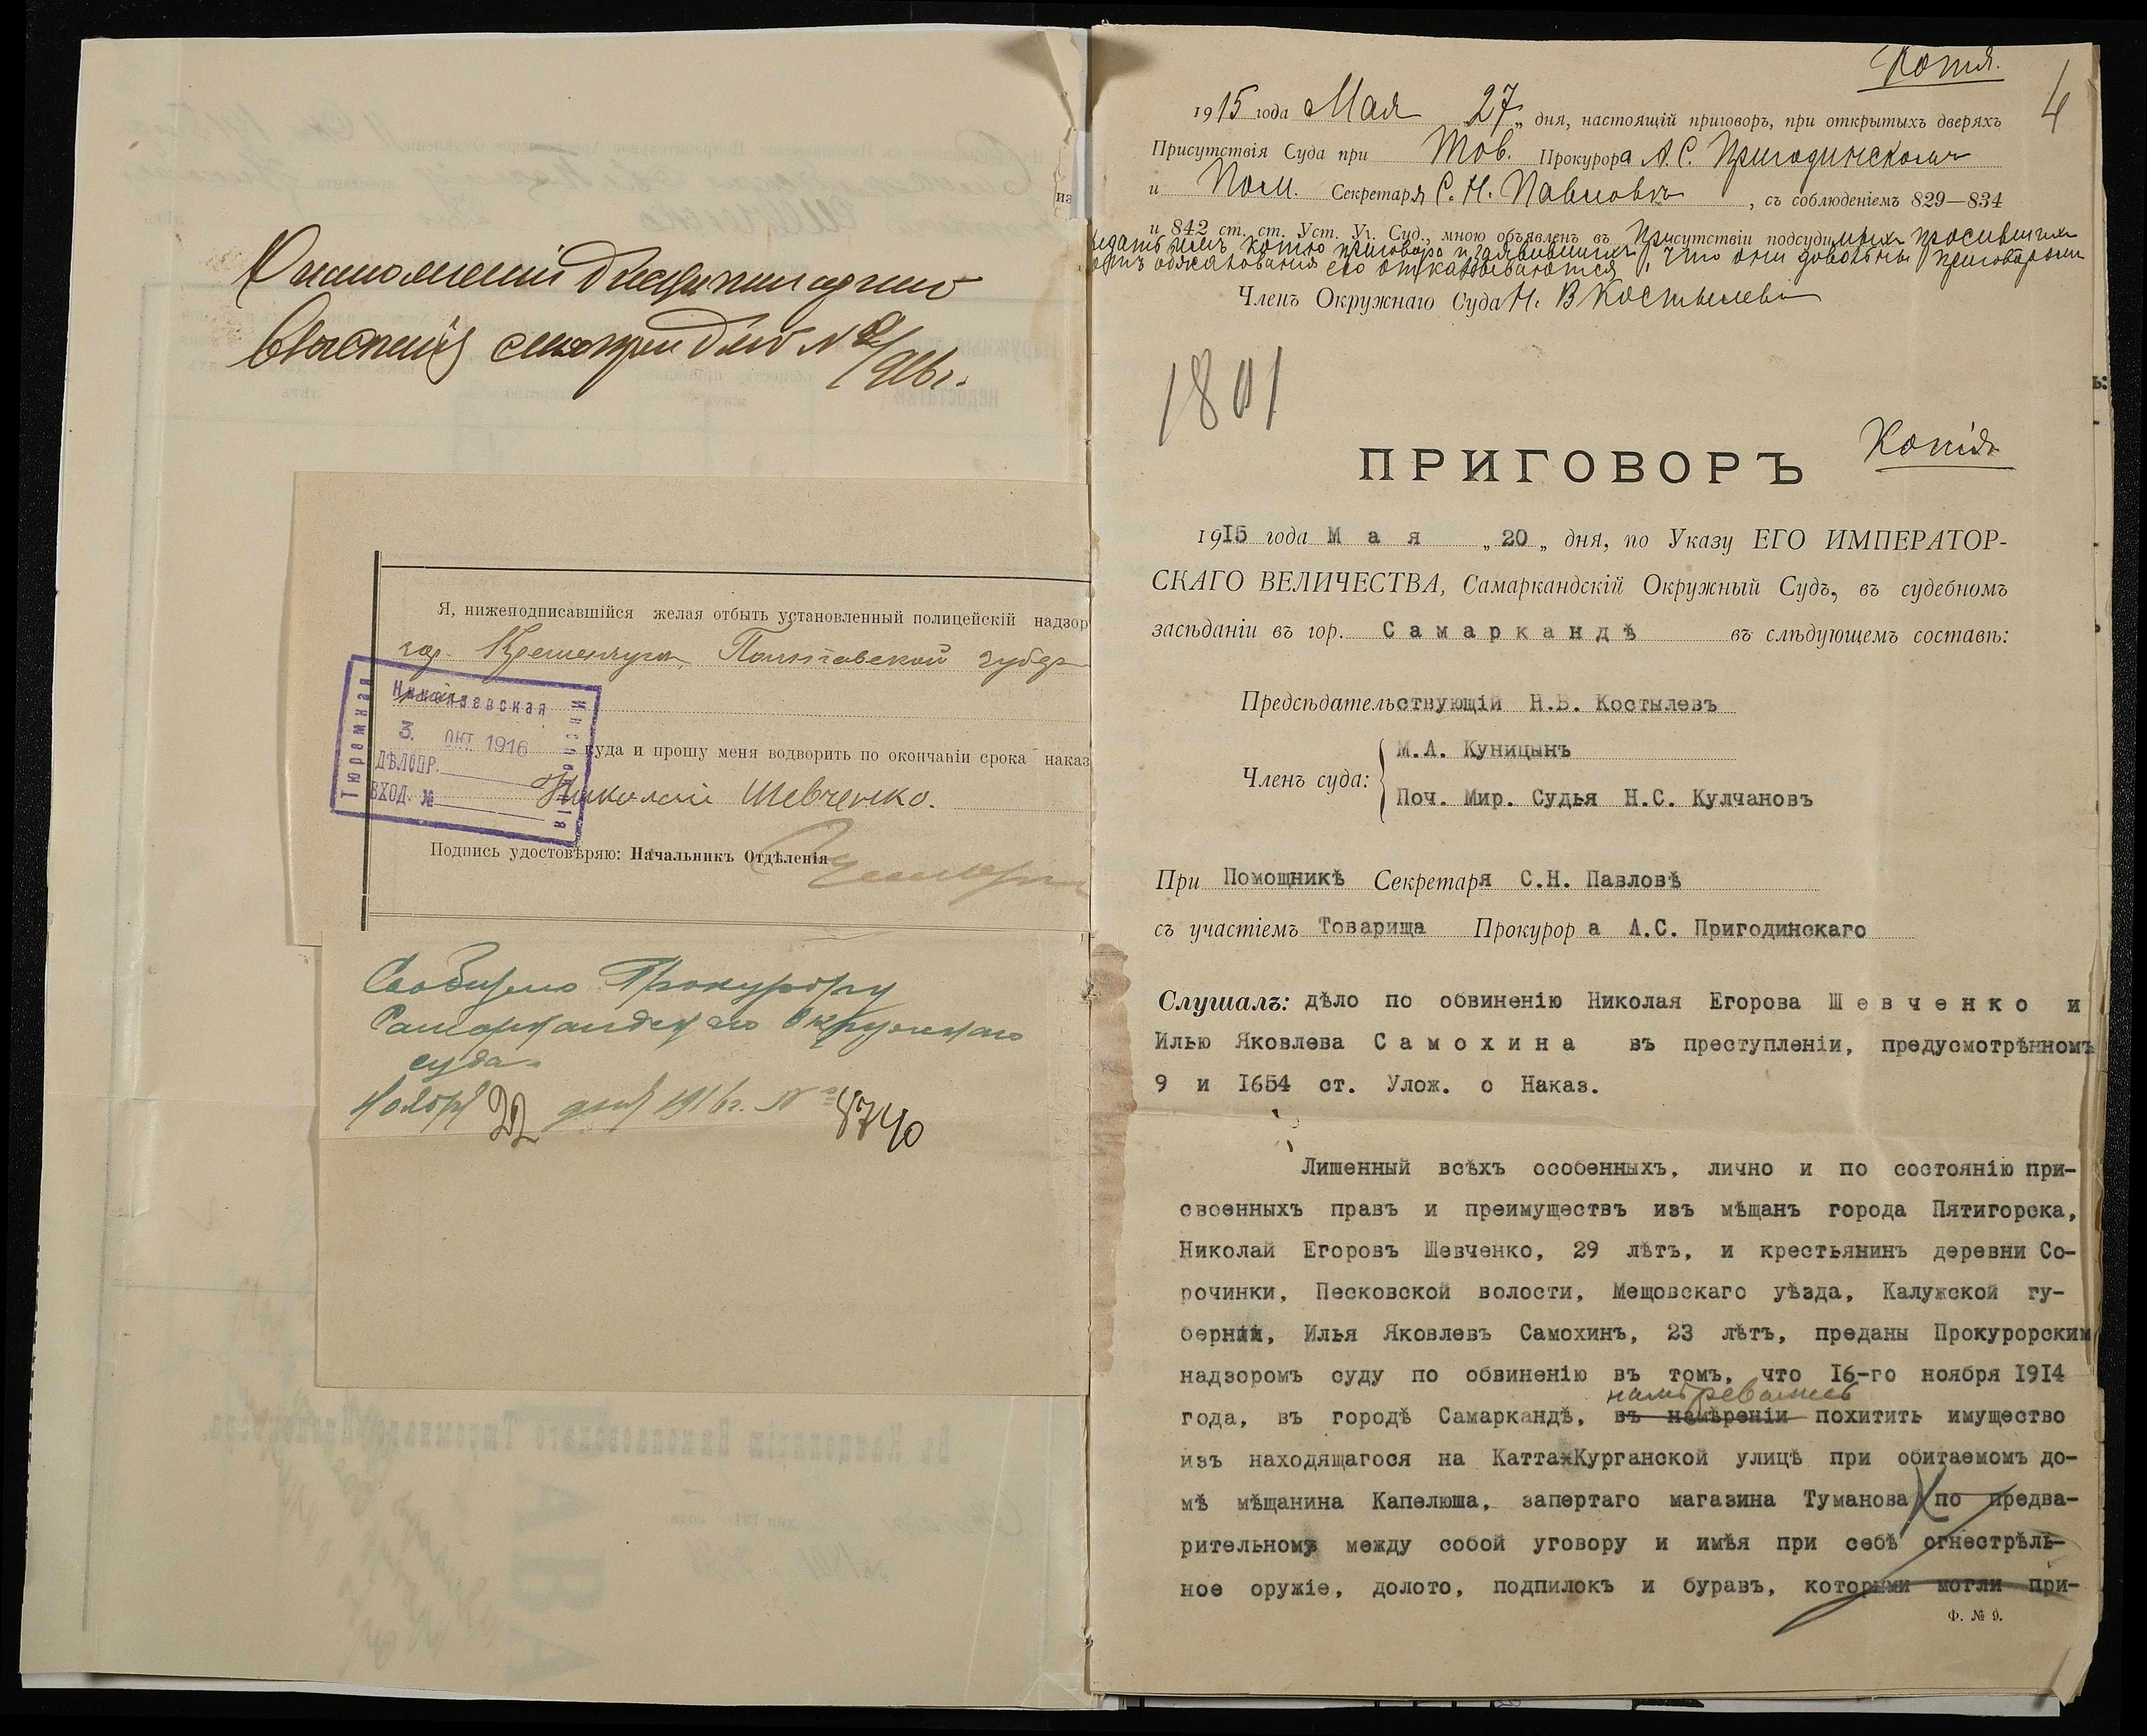 1915 года Мая 27 дня, настоящій приговоръ, при открытыхъ дверяхъ
Присутствія Суда при Тов. Прокурора А.С. Пригодинскомъ
и Пом. Секретаря С.Н. Павловѣ, съ соблюденіемъ 829—834
и 842 ст. ст. Уст. Уг. Суд., мною объявленъ въ Присутствіи подсудимыхъ просившихъ
выдать имъ копію приговора и заявившихъ, что они довольны приговоромъ
отъ обжалованія его отказываются.
Членъ Окружнаго Суда Н. В Костылевъ
Копія.
4
1801
ПРИГОВОРЪ
Копія
1915 года Мая „20„ дня, по Указу ЕГО ИМПЕРАТОР-
СКАГО ВЕЛИЧЕСТВА, Самаркандскій Окружный Судъ, въ судебномъ
засѣданіи въ гор. Самаркандѣ въ слѣдующемъ составѣ:
Предсѣдательствующій Н.В. Костылевъ
Членъ суда:
М.А. Куницынъ
Поч. Мир. Судья Н.С. Кулчановъ
При Помощникѣ Секретаря С.Н. Павловѣ
съ участіемъ Товарища Прокурора А.С. Пригодинскаго
Слушалъ: дѣло по обвиненію Николая Егорова Шевченко и
Илью Яковлева Самохина въ преступленіи, предусмотрѣнномъ
9 и 1654 ст. Улож. о Наказ.
Лишенный всѣхъ особенныхъ, лично и по состоянію при-
своенныхъ правъ и преимуществъ изъ мѣщанъ города Пятигорска,
Николай Егоровъ Шевченко, 29 лѣтъ, и крестьянинъ деревни Со-
рочинки, Песковской волости, Мещовскаго уѣзда, Калужской гу-
берніи, Илья Яковлевъ Самохинъ, 23 лѣтъ, преданы Прокурорским
надзоромъ суду по обвиненію въ томъ, что 16-го ноября 1914
намѣреваясь
года, въ городѣ Самаркандѣ, въ намѣреніи похитить имущество
изъ находящагося на Катта-Курганской улицѣ при обитаемомъ до-
мѣ мѣщанина Капелюша, запертаго магазина Туманова по предва-
рительному между собой уговору и имѣя при себѣ огнестрѣль-
ное оружіе, долото, подпилокъ и буравъ, которыми могли при-
Ф. № 9.
№ 2/916г.
Я, нижеподписавшійся желая отбыть установленный полицейскій надзор
гор. Кременчуга, Полтавской губер
куда и прошу меня водворить по окончаніи срока наказ
Николай Шевченко.
Подпись удостовѣряю: Начальникъ Отдѣленія
Николаевская
Тюремная
3. ОКТ 1916
ДѢЛОПР.
ВХОД. №
Сообщено Прокурору
Самаркандскаго Окружнаго
суда.
Ноября 22 дня 1916г. № 8740